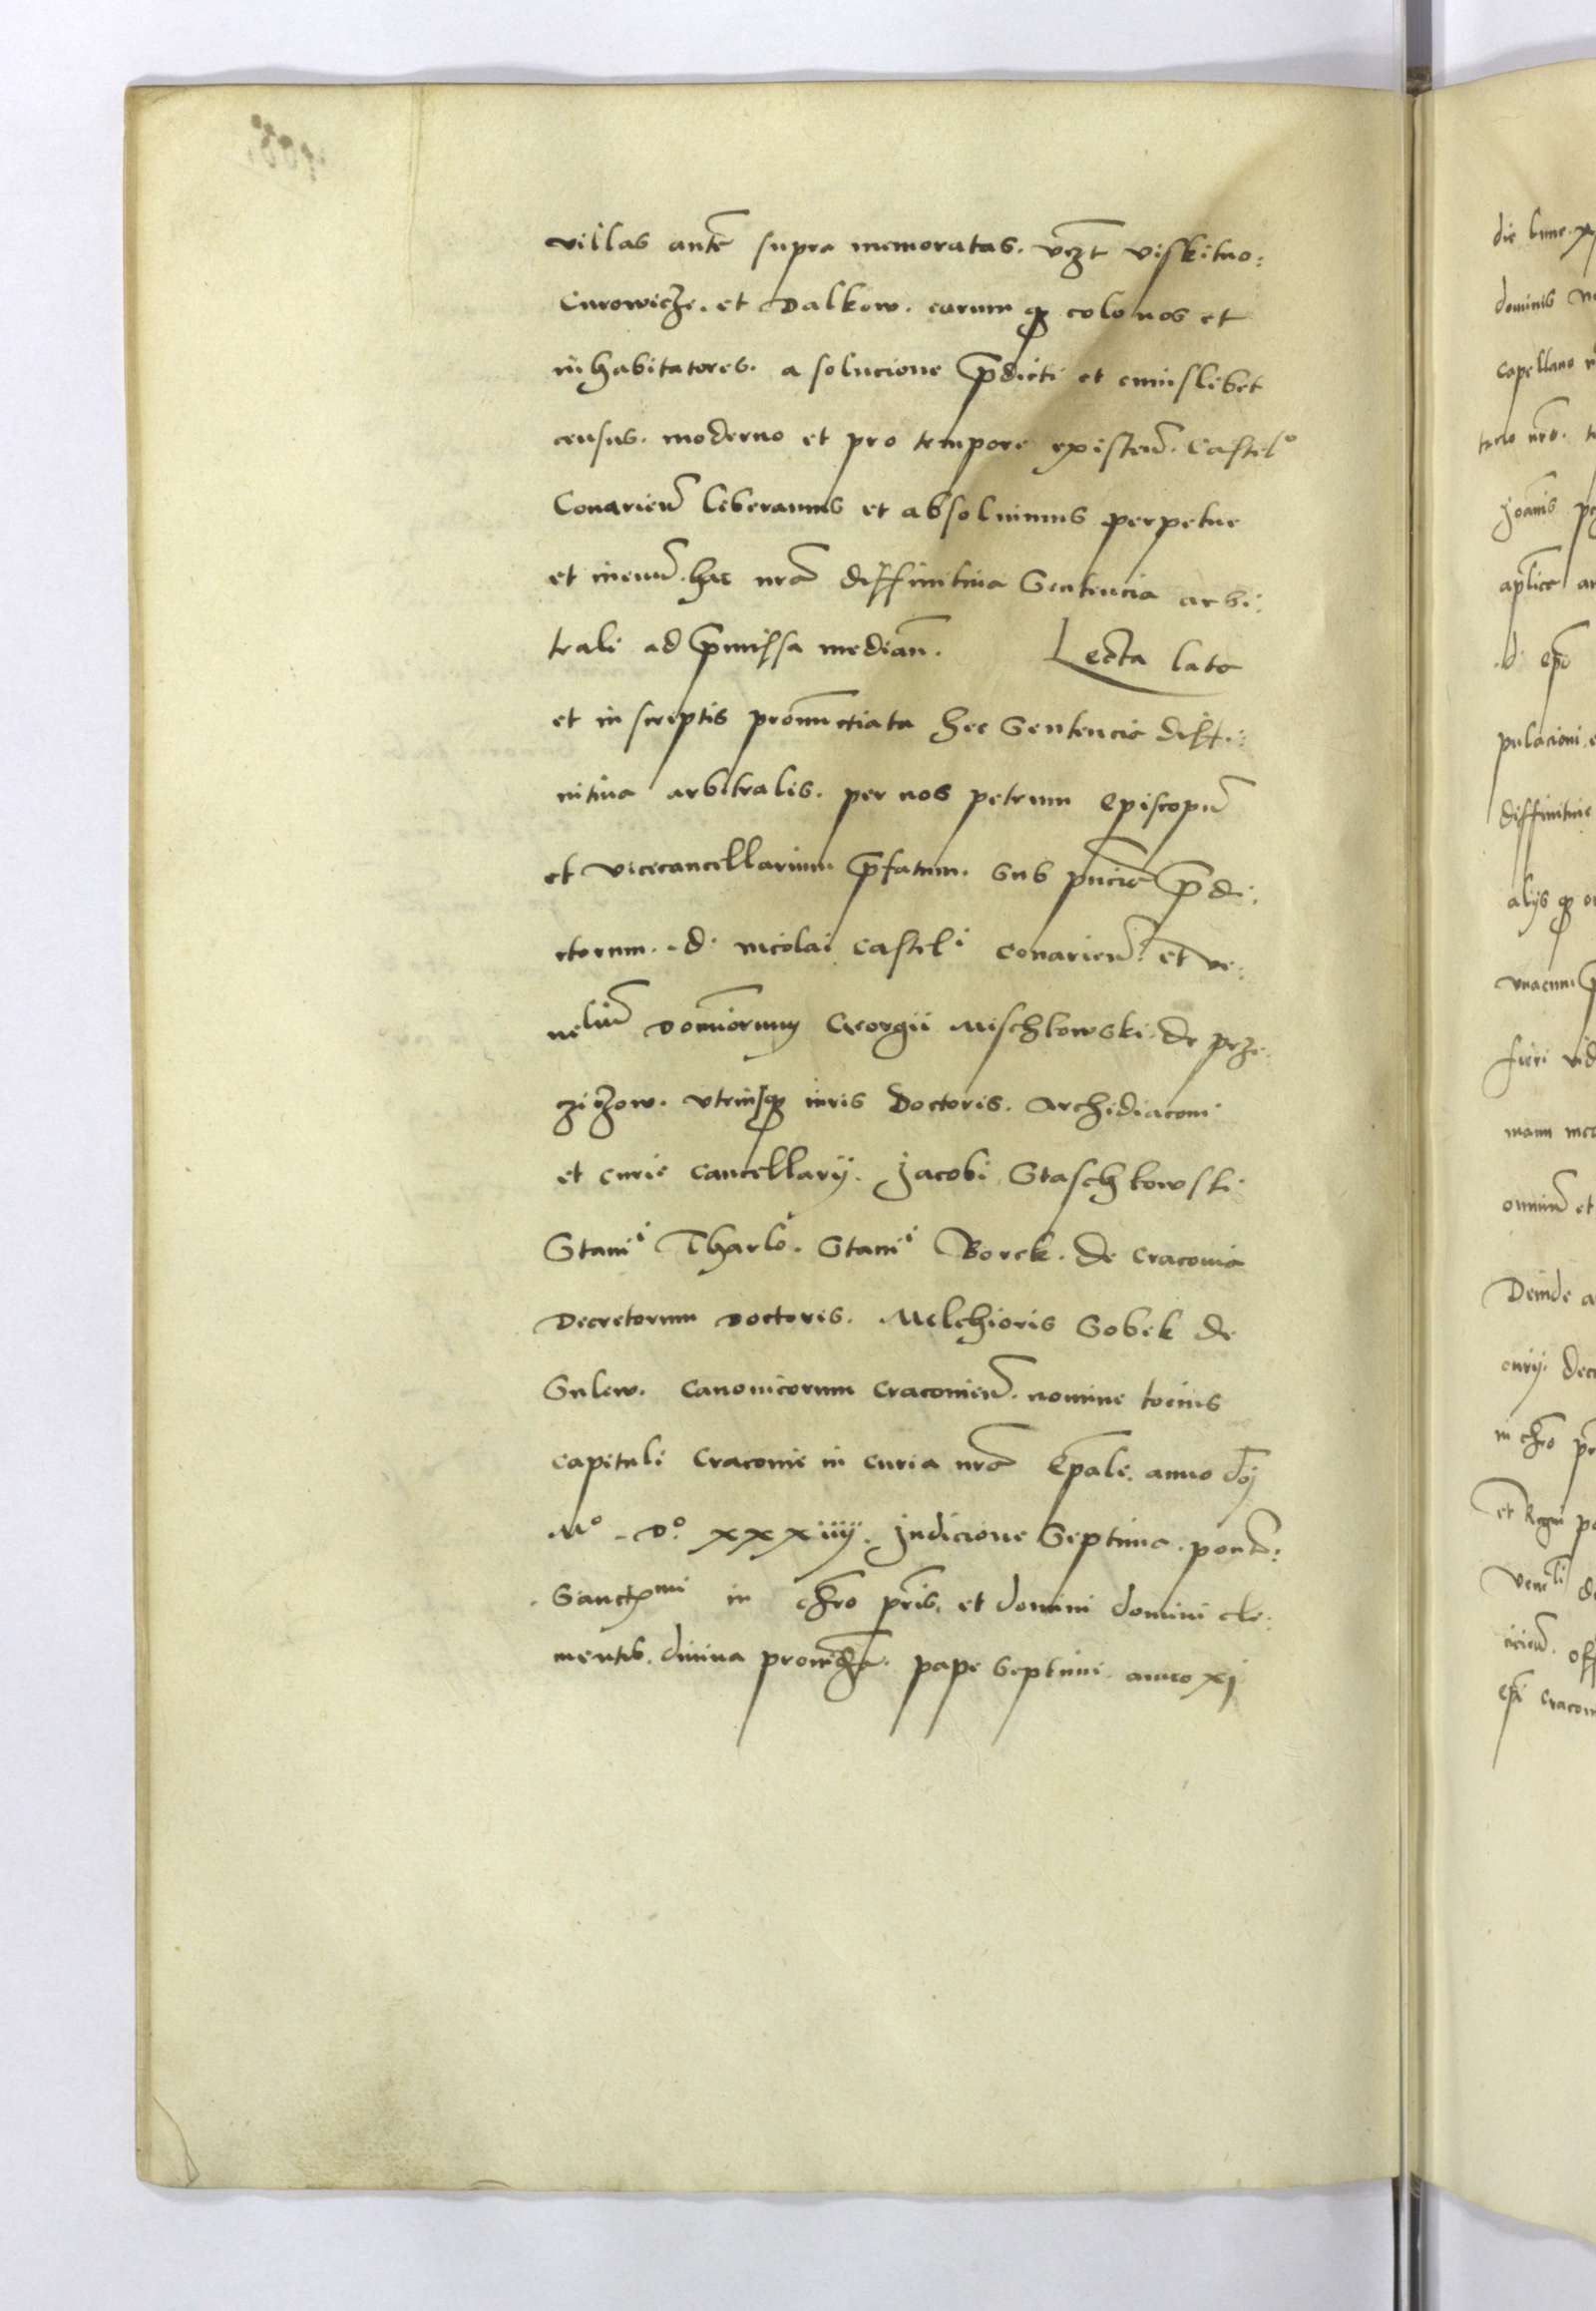 villas antē supra memoratas. vzt visſkituo:
Curowicze. et Dalkow. earumqꝫ colonos et
inhabitatores. a solucione p̄dicti et cuiuslibet
census. moderno et pro tempore existen̄. Castelo
Conarien̄ leberamus et absoluimus perpetue
et ineuū. hac nr̄a diffinitiua Sentencia arbi:
trali ad p̄missa median̄. Lecta lata
et in screptis pronunctiata hec Sentencia diffi:
nitiua arbitralis. per nos petrum Episcopū
et vicecancellarium p̄fatum. sub pn̄cia p̄di:
ctorum. d. nicolai Casteli Conarien̄. et ve:
nelium̄ Dominorum Georgii Mischkowski de prze:
ziczow. vtriusqꝫ iuris Doctoris. Archidiaconi
et curie Cancellarij. Jacobi Staschkowski
Stanii Tharlo. Stanii Borek. de Cracouia
Decretorum Doctoris. Melchioris Sobek de
Sulew. Canonicorum Cracouien̄. nomine tocius
capituli Cracouie in curia nr̄a Ep̄ali. anno dnj̄
Mo. Do. xxxiiij. Jndicione Septima. pont̄:
Sanctmi in chr̄o pr̄is. et domini domini cle:
mentis. diuina prouid̄a. pape Septimi. anno xj
die lune
dominis
Capellano
nr̄o.
Joānis
ap̄lice
.d. ep̄o
pulacioni.
diffinitiue
alijsqꝫ
vnacum
fieri
manu
omniū et
Deinde
curij.
in chr̄o
et Regni
Veneli
ep̄i Cracou